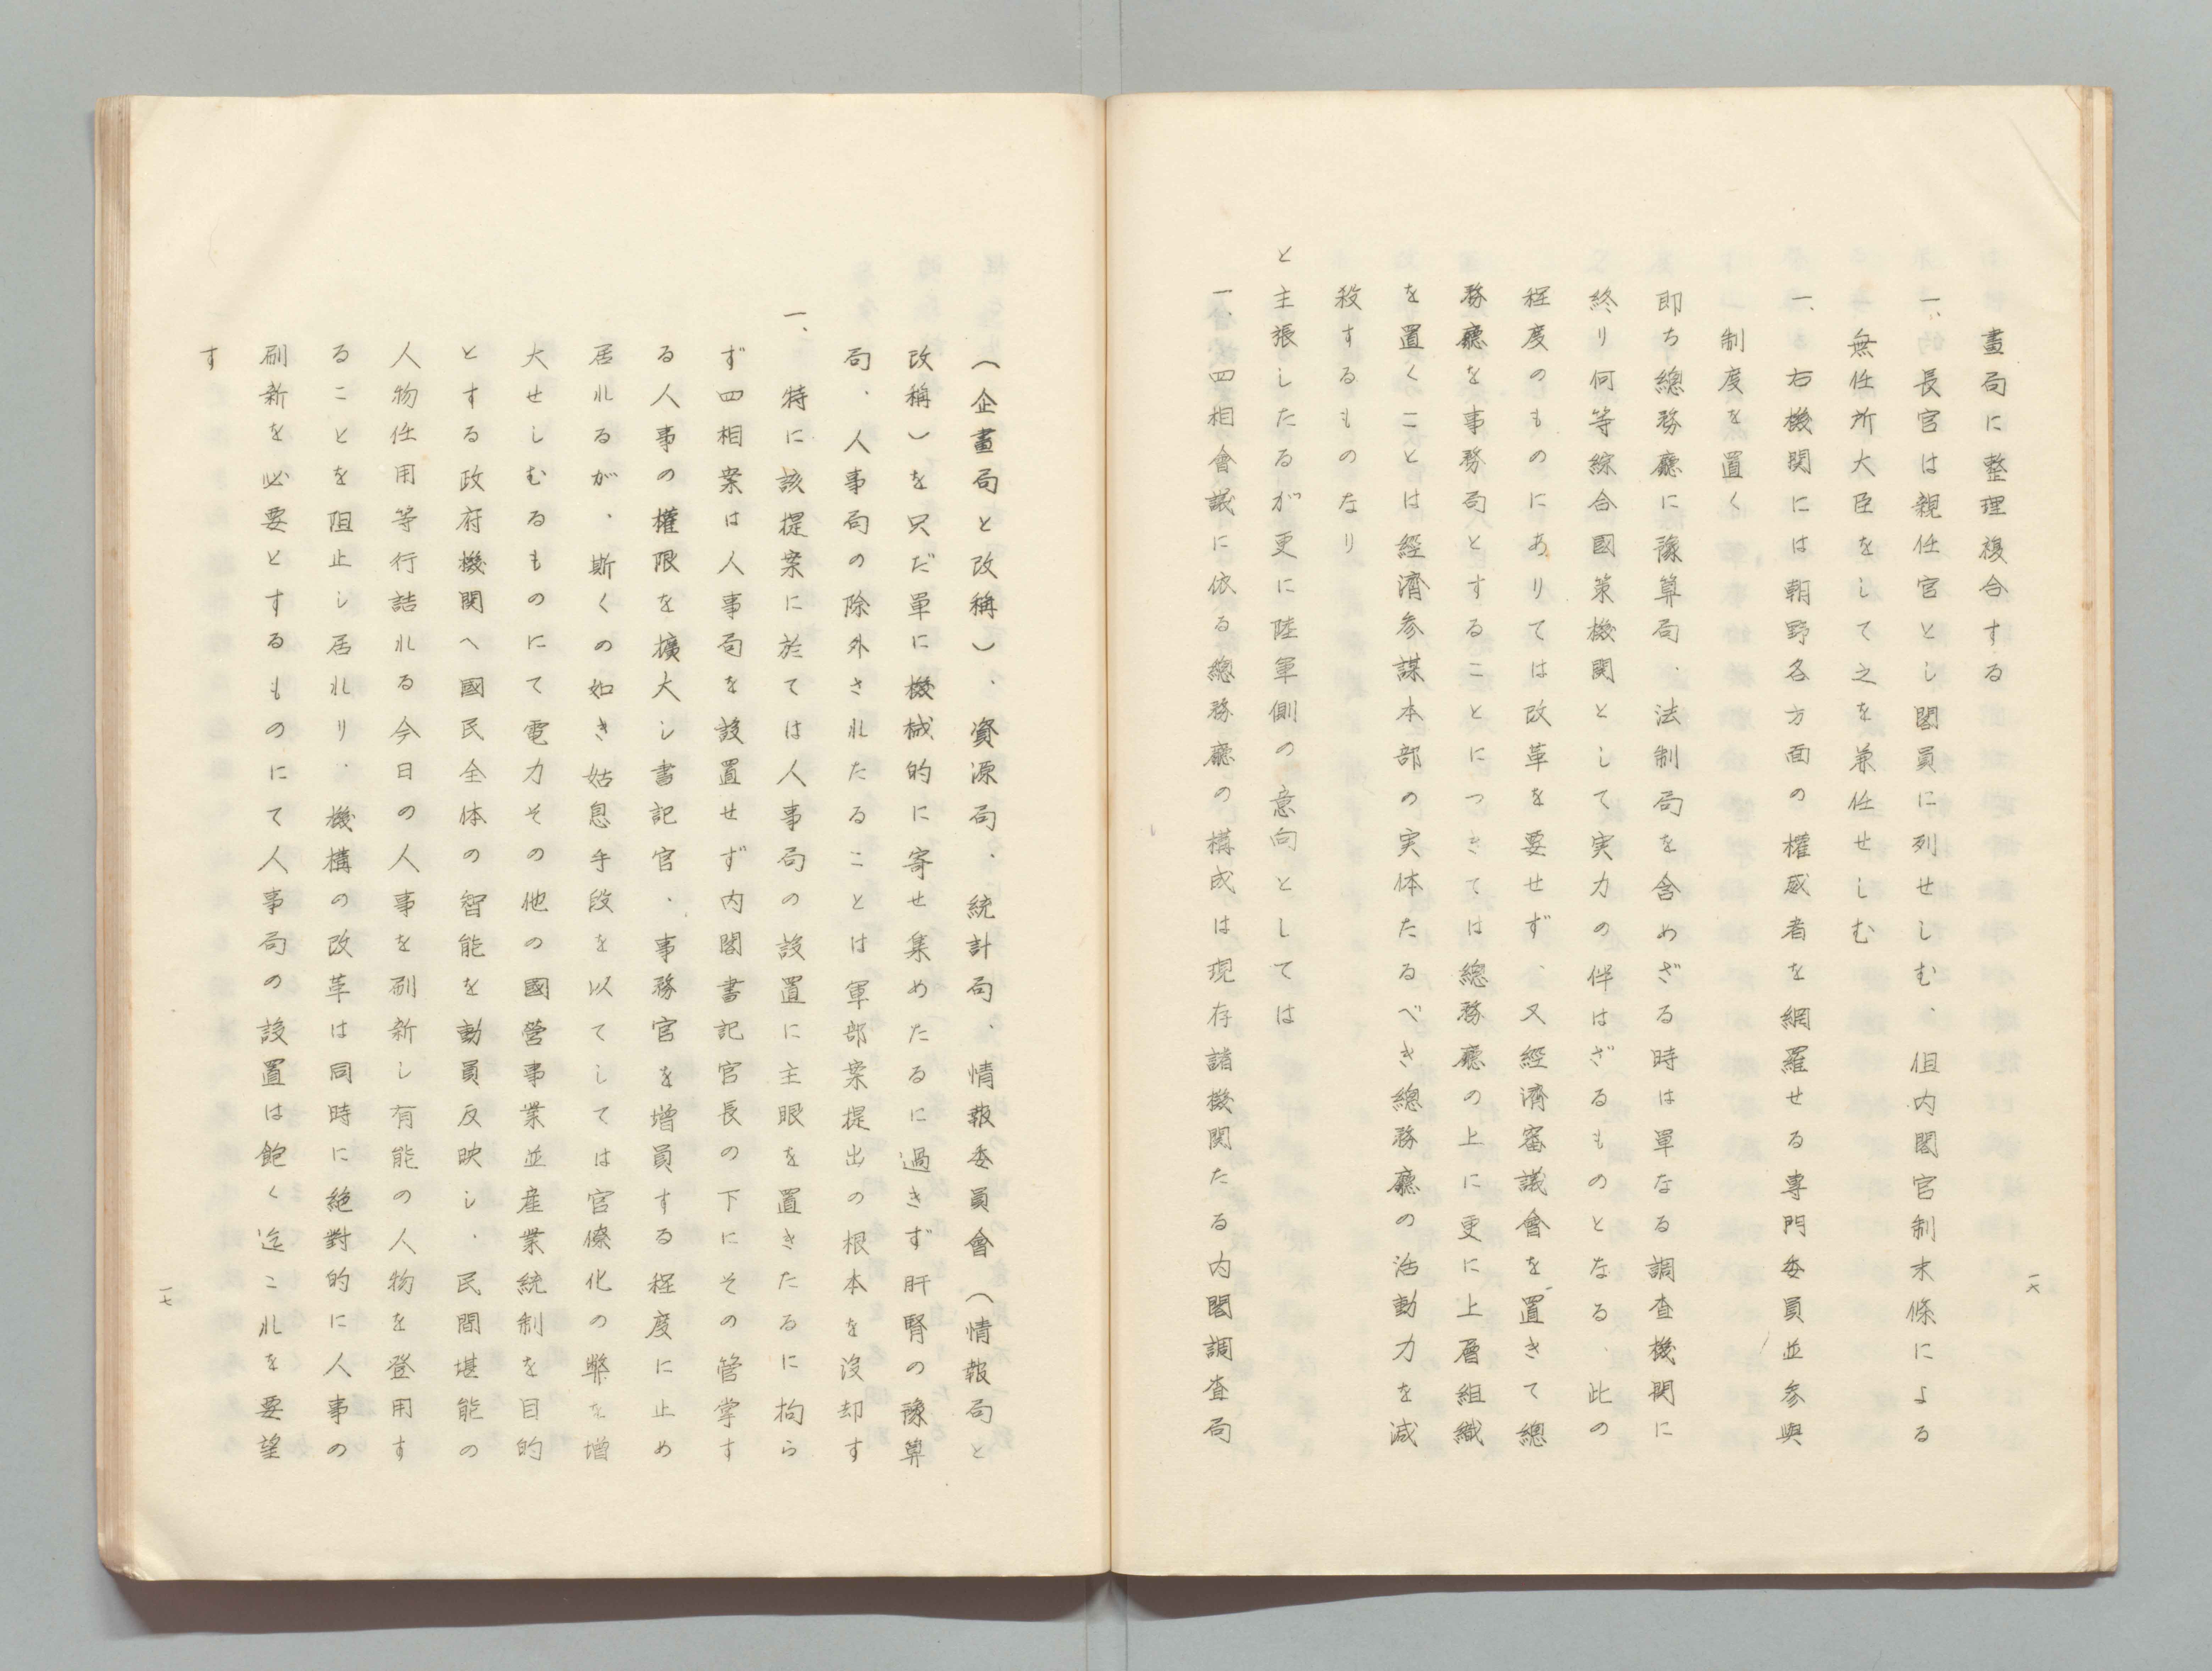 畫局に整理複合する
一、長官は親任官とし閣員に列せしむ、但内閣官制末條による
無任所大臣をして之を兼任せしむ
一、右機関には朝野各方面の權威者を網羅せる專門委員並参與
制度を置く
即ち總務廳に豫算局、法制局を含めざる時は單なる調査機関に
終り何等綜合國策機関として実力の伴はざるものとなる、此の
程度のものにありては改革を要せず、又經濟審議會を置きて總
務廳を事務局とすることにつきては總務廳の上に更に上層組織
を置くことは經濟参謀本部の実体たるべき總務廳の活動力を減
殺するものなり
と主張したるが更に陸軍側の意向としては
一、四相會議に依る總務廳の構成は現存諸機関たる内閣調査局
一六
（企畫局と改稱）、資源局、統計局、情報委員會（情報局と
改稱）を只だ單に機械的に寄せ集めたるに過きず肝腎の豫算
局、人事局の除外されたることは軍部案提出の根本を沒却す
一、特に該提案に於ては人事局の設置に主眼を置きたるに拘ら
ず四相案は人事局を設置せず内閣書記官長の下にその管掌す
る人事の權限を擴大し書記官、事務官を增員する程度に止め
居れるが、斯くの如き姑息手段を以てしては官僚化の弊を增
大せしむるものにて電力その他の國營事業並産業統制を目的
とする政府機関へ國民全体の智能を動員反映し、民間堪能の
人物任用等行詰れる今日の人事を刷新し有能の人物を登用す
ることを阻止し居れり、機構の改革は同時に絶對的に人事の
刷新を必要とするものにて人事局の設置は飽く迄これを要望
す
一七